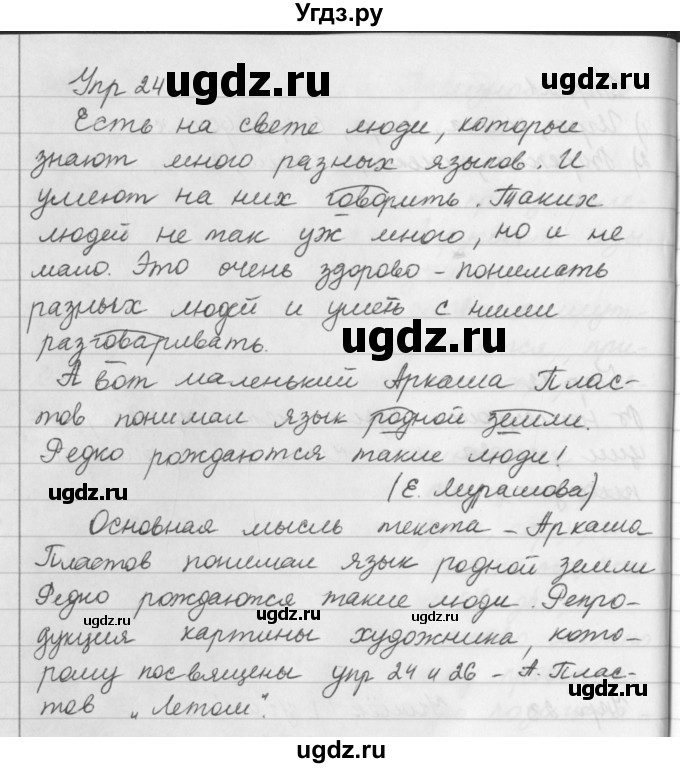 Угдз.ру
Упр 24
ugdz.ru
ugdz.ru
Есть на свете люди, которые
знают много разных языков. И
умеют на них говорить. Таких
людей не так уж много, но и не
мало. Это очень здорово – понимать
разных людей и уметь с ними
разговаривать.
ugdz.ru
А вот маленький Аркаша Плас-
тов понимал язык родной земли.
Редко рождаются такие люди!
ugdz.ru
(Е. Мурашова)
Основная мысль текста – Аркаша
Пластов понимал язык родной земли
Редко рождаются такие люди. Репро-
ugdz.ru
ugdz.ru
дукция картины художника, кото-
рому посвящены упр 24 и 26 – А. Плас-
ugdz.ru
тов „Летом".
ugdz.ru